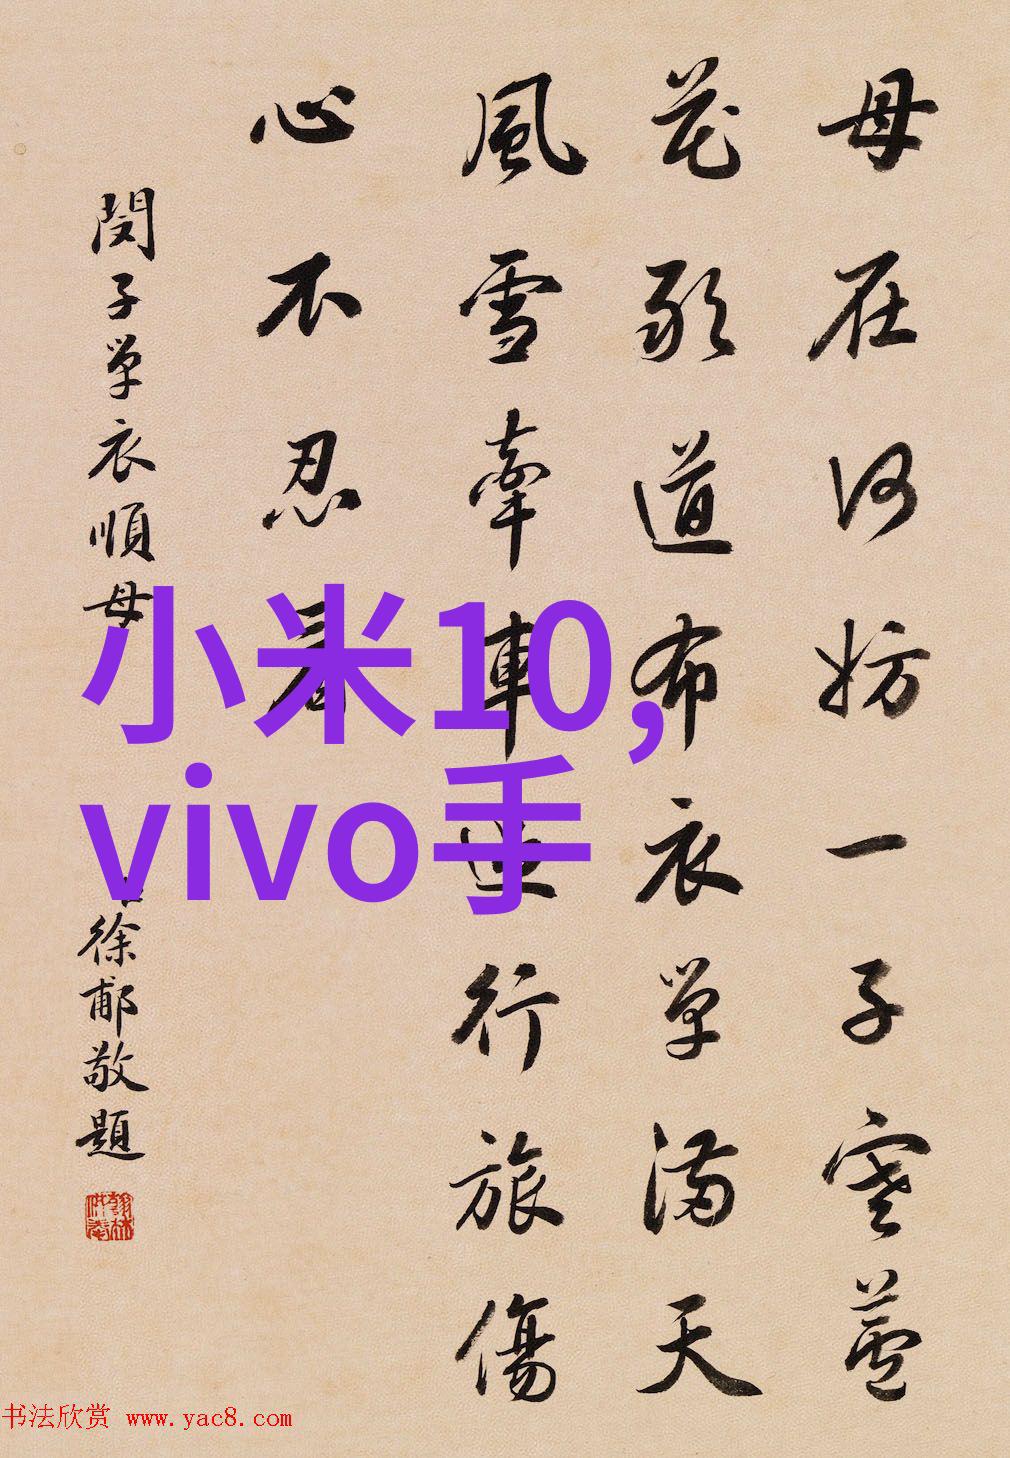 母在何妨一子寒蘆
花道布衣單滿天
風雪牽車行旅傷
心不忍看
閔子單衣順母
徐郙敬題
翰林供奉
小米10,
vivo手
书法欣赏 www.yac8.com